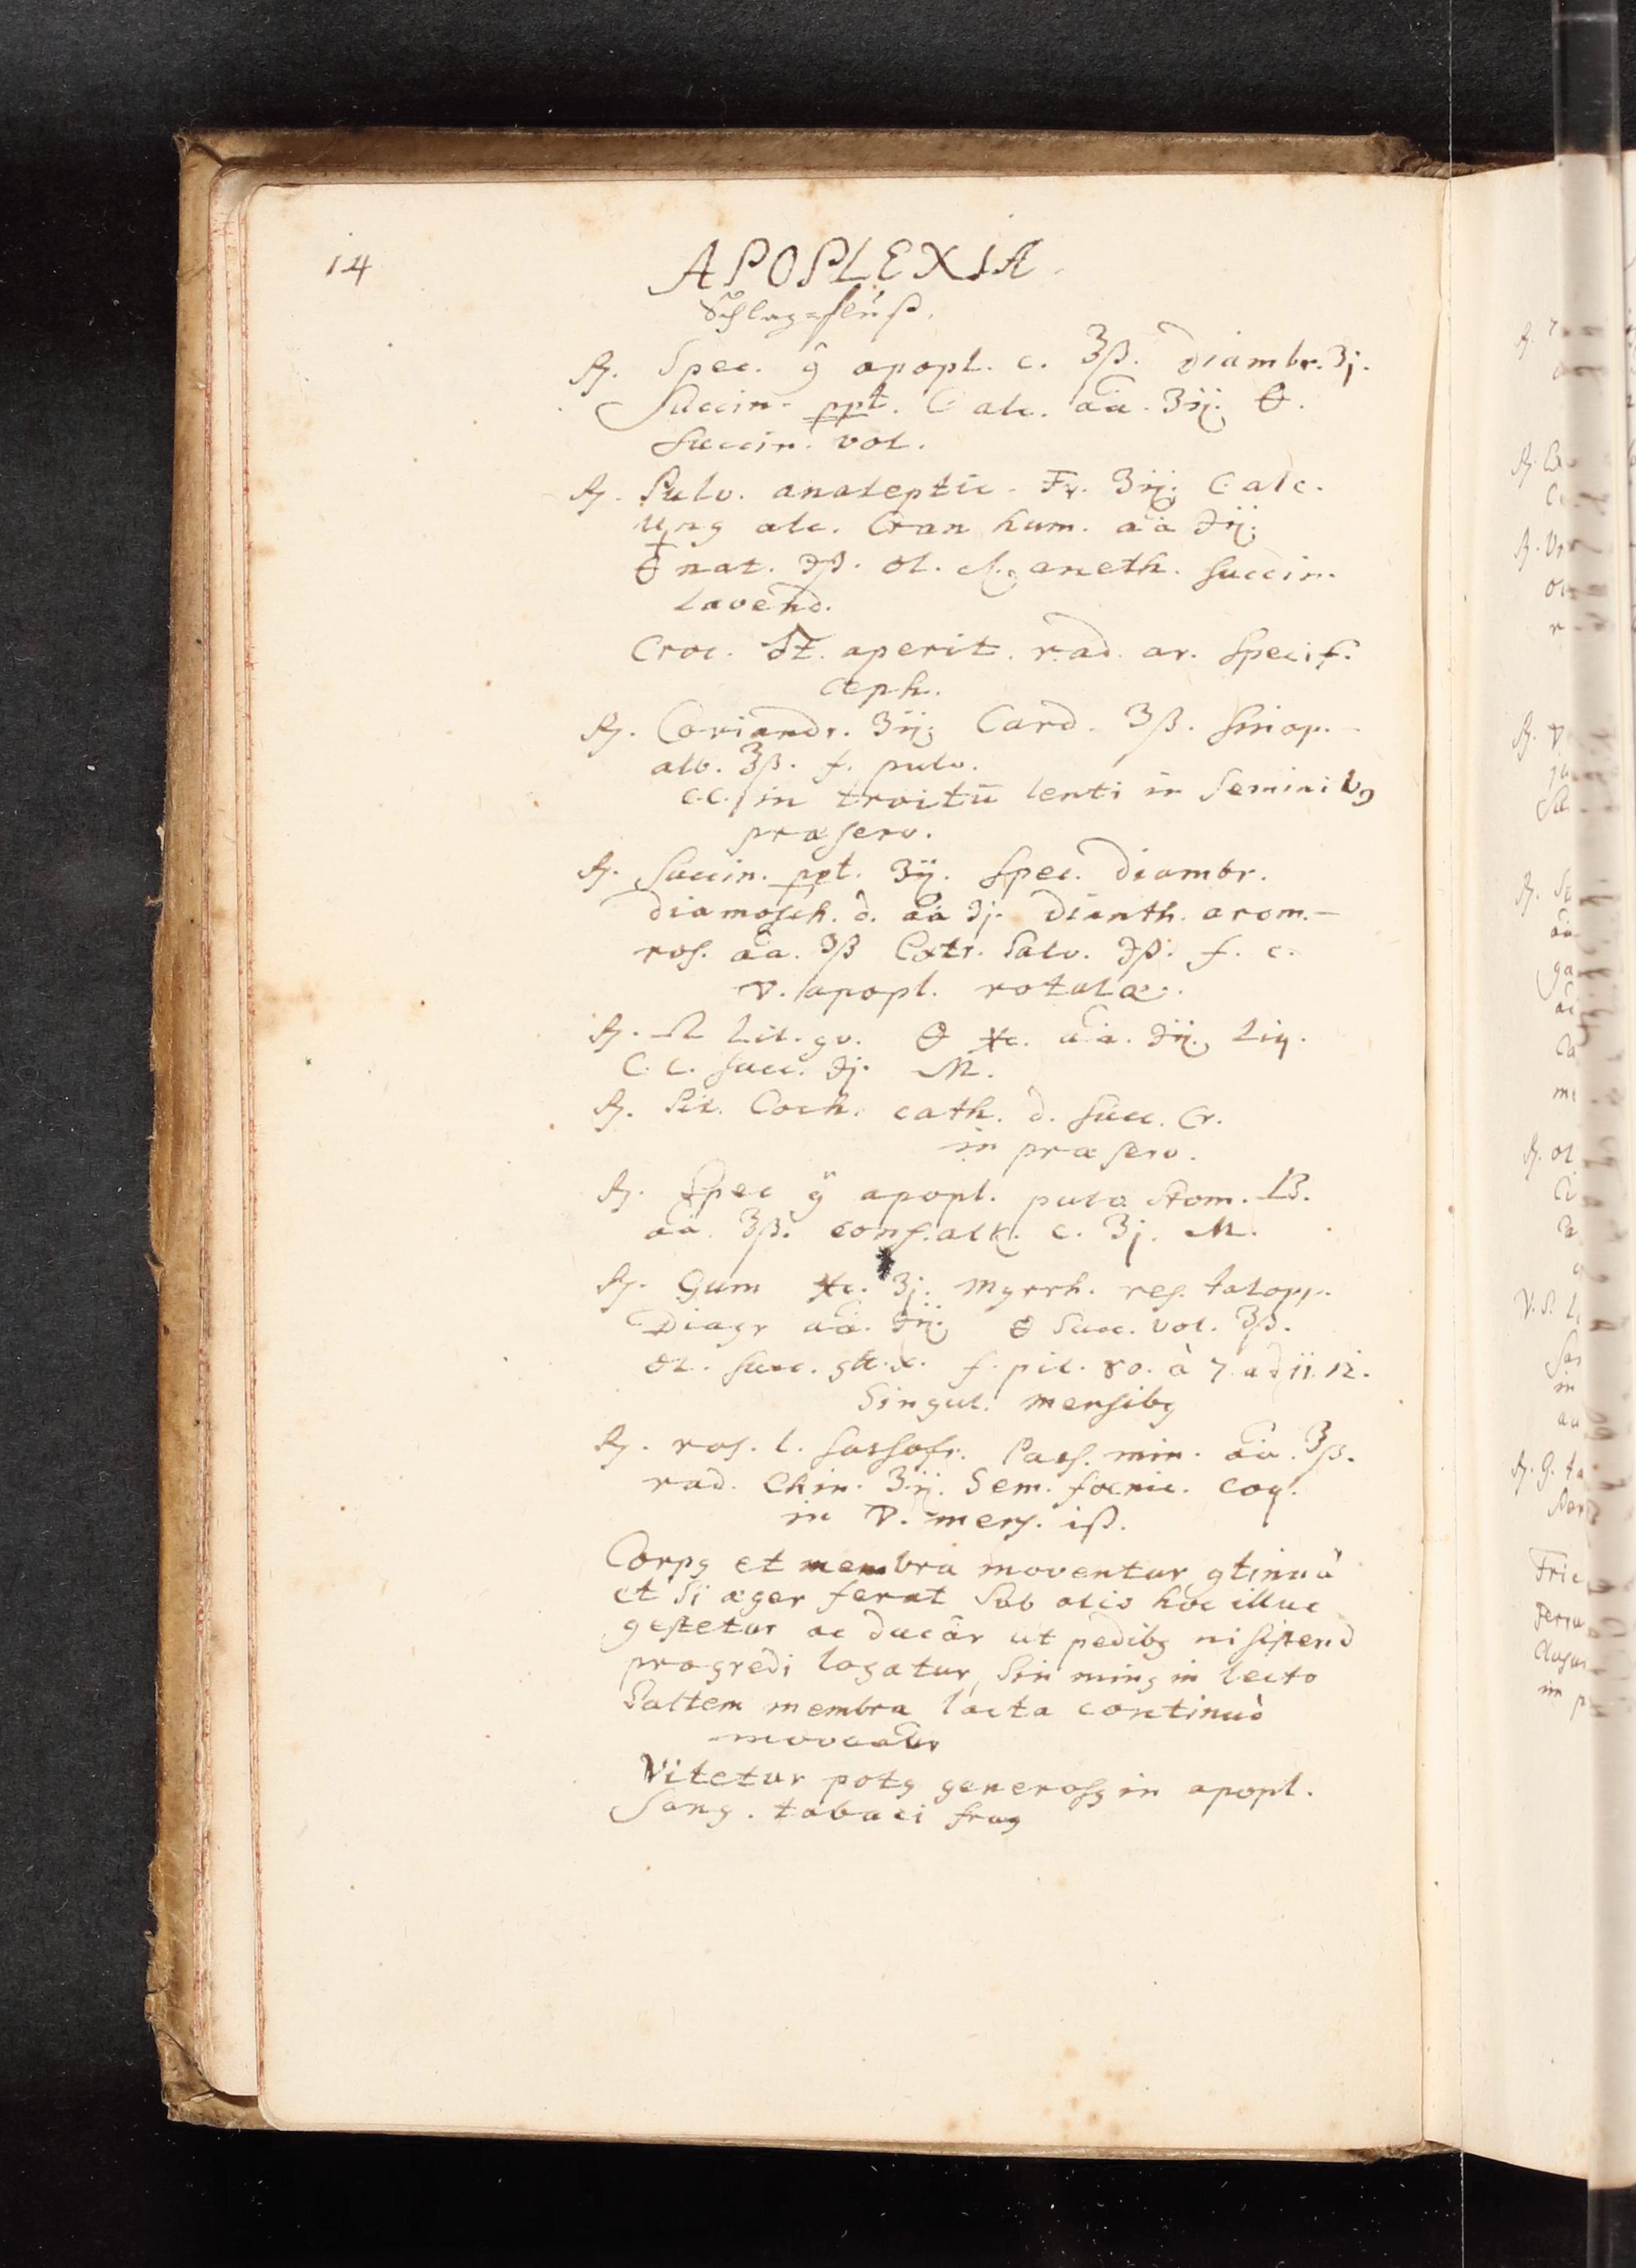 14
APOPLEXIA.
Schlag=fluß.
℞. Spec. g̃ apopl. c. ʒß. diambr. ʒj.
Succin. ppt. C alc. aa. ʒij. ϴ.
Succin. vol.
℞. Pulv. analeptic. ʒiij. C. alc.
Ung alc. Cran hum. aa ℈ij.
nat. ℈ß. ol. aneth. succin.
lavend.
Croc. ♂t. aperit. rad. ar. specif.
ceph.
℞. Coriandr. ʒij. Card. ʒß. sinop.
alb. ʒß. f. pulv.
in lenti in Seminibꝯ
præserv.
℞. Succin. ppt. ʒij. Spec. diambr.
diamosch. d. aa ℈j. dianth. arom.
ros. aa. ℈ß Extr. Salv. ℈ß. f. c.
▽. apopl. rotulæ.
℞. Lil. ϴ aa. ℈ij. Liq.
C. C. succ. ℈j. M.
℞. Pil. Coch. cath. d. Succ. Cr.
in præserv.
℞. Spec g̃ apopl. pulv Stom. B.
aa. ʒß. conf. alk. c. ʒj. M.
℞. Gum ʒj. Myrrh. res. Jalopp.
Diagr aa. ℈ij. ϴ Succ. vol. ℈ß.
ol. succ. gtt. x. f. pil. à 7 ad 11. 12.
Singul. mensibꝯ
℞. ras. l. Sassafr. Pass. min. aa. ʒß.
rad. Chin. ʒij. Sem. foenic. coq.
in ▽. mens. iß.
Corpꝯ et membra moventur ꝯtinuò
et si æger ferat sub aliis hoc illuc
gestetur ac ducatr ut pedibꝯ nisitend
progredi cogatur, Sin minꝯ in lecto
Saltem membra continuò
moveatr
Vitetur potꝯ generosꝯ in apopl.
Sang. tabaci